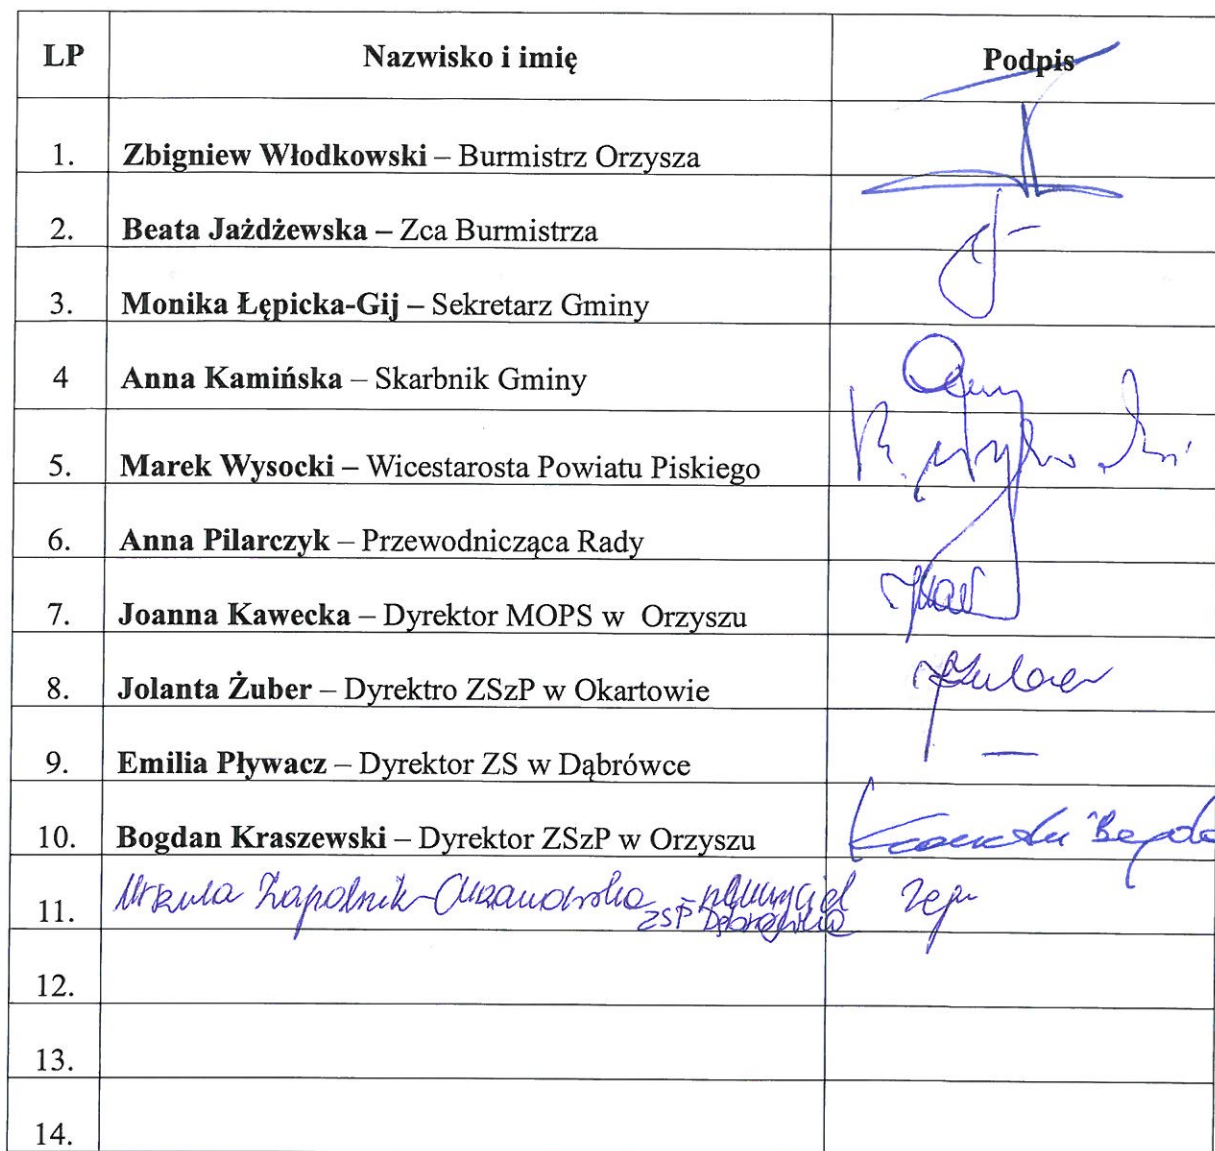 LP Nazwisko i imię Podpis
1. Zbigniew Włodkowski – Burmistrz Orzysza
2. Beata Jażdżewska – Zca Burmistrza
3. Monika Łępicka-Gij – Sekretarz Gminy
4 Anna Kamińska – Skarbnik Gminy
5. Marek Wysocki – Wicestarosta Powiatu Piskiego
6. Anna Pilarczyk – Przewodnicząca Rady
7. Joanna Kawecka – Dyrektor MOPS w Orzyszu
8. Jolanta Żuber – Dyrektro ZSzP w Okartowie
9. Emilia Pływacz – Dyrektor ZS w Dąbrówce —
10. Bogdan Kraszewski – Dyrektor ZSzP w Orzyszu
11. Urszula - nauczyciel
ZSP
12.
13.
14.